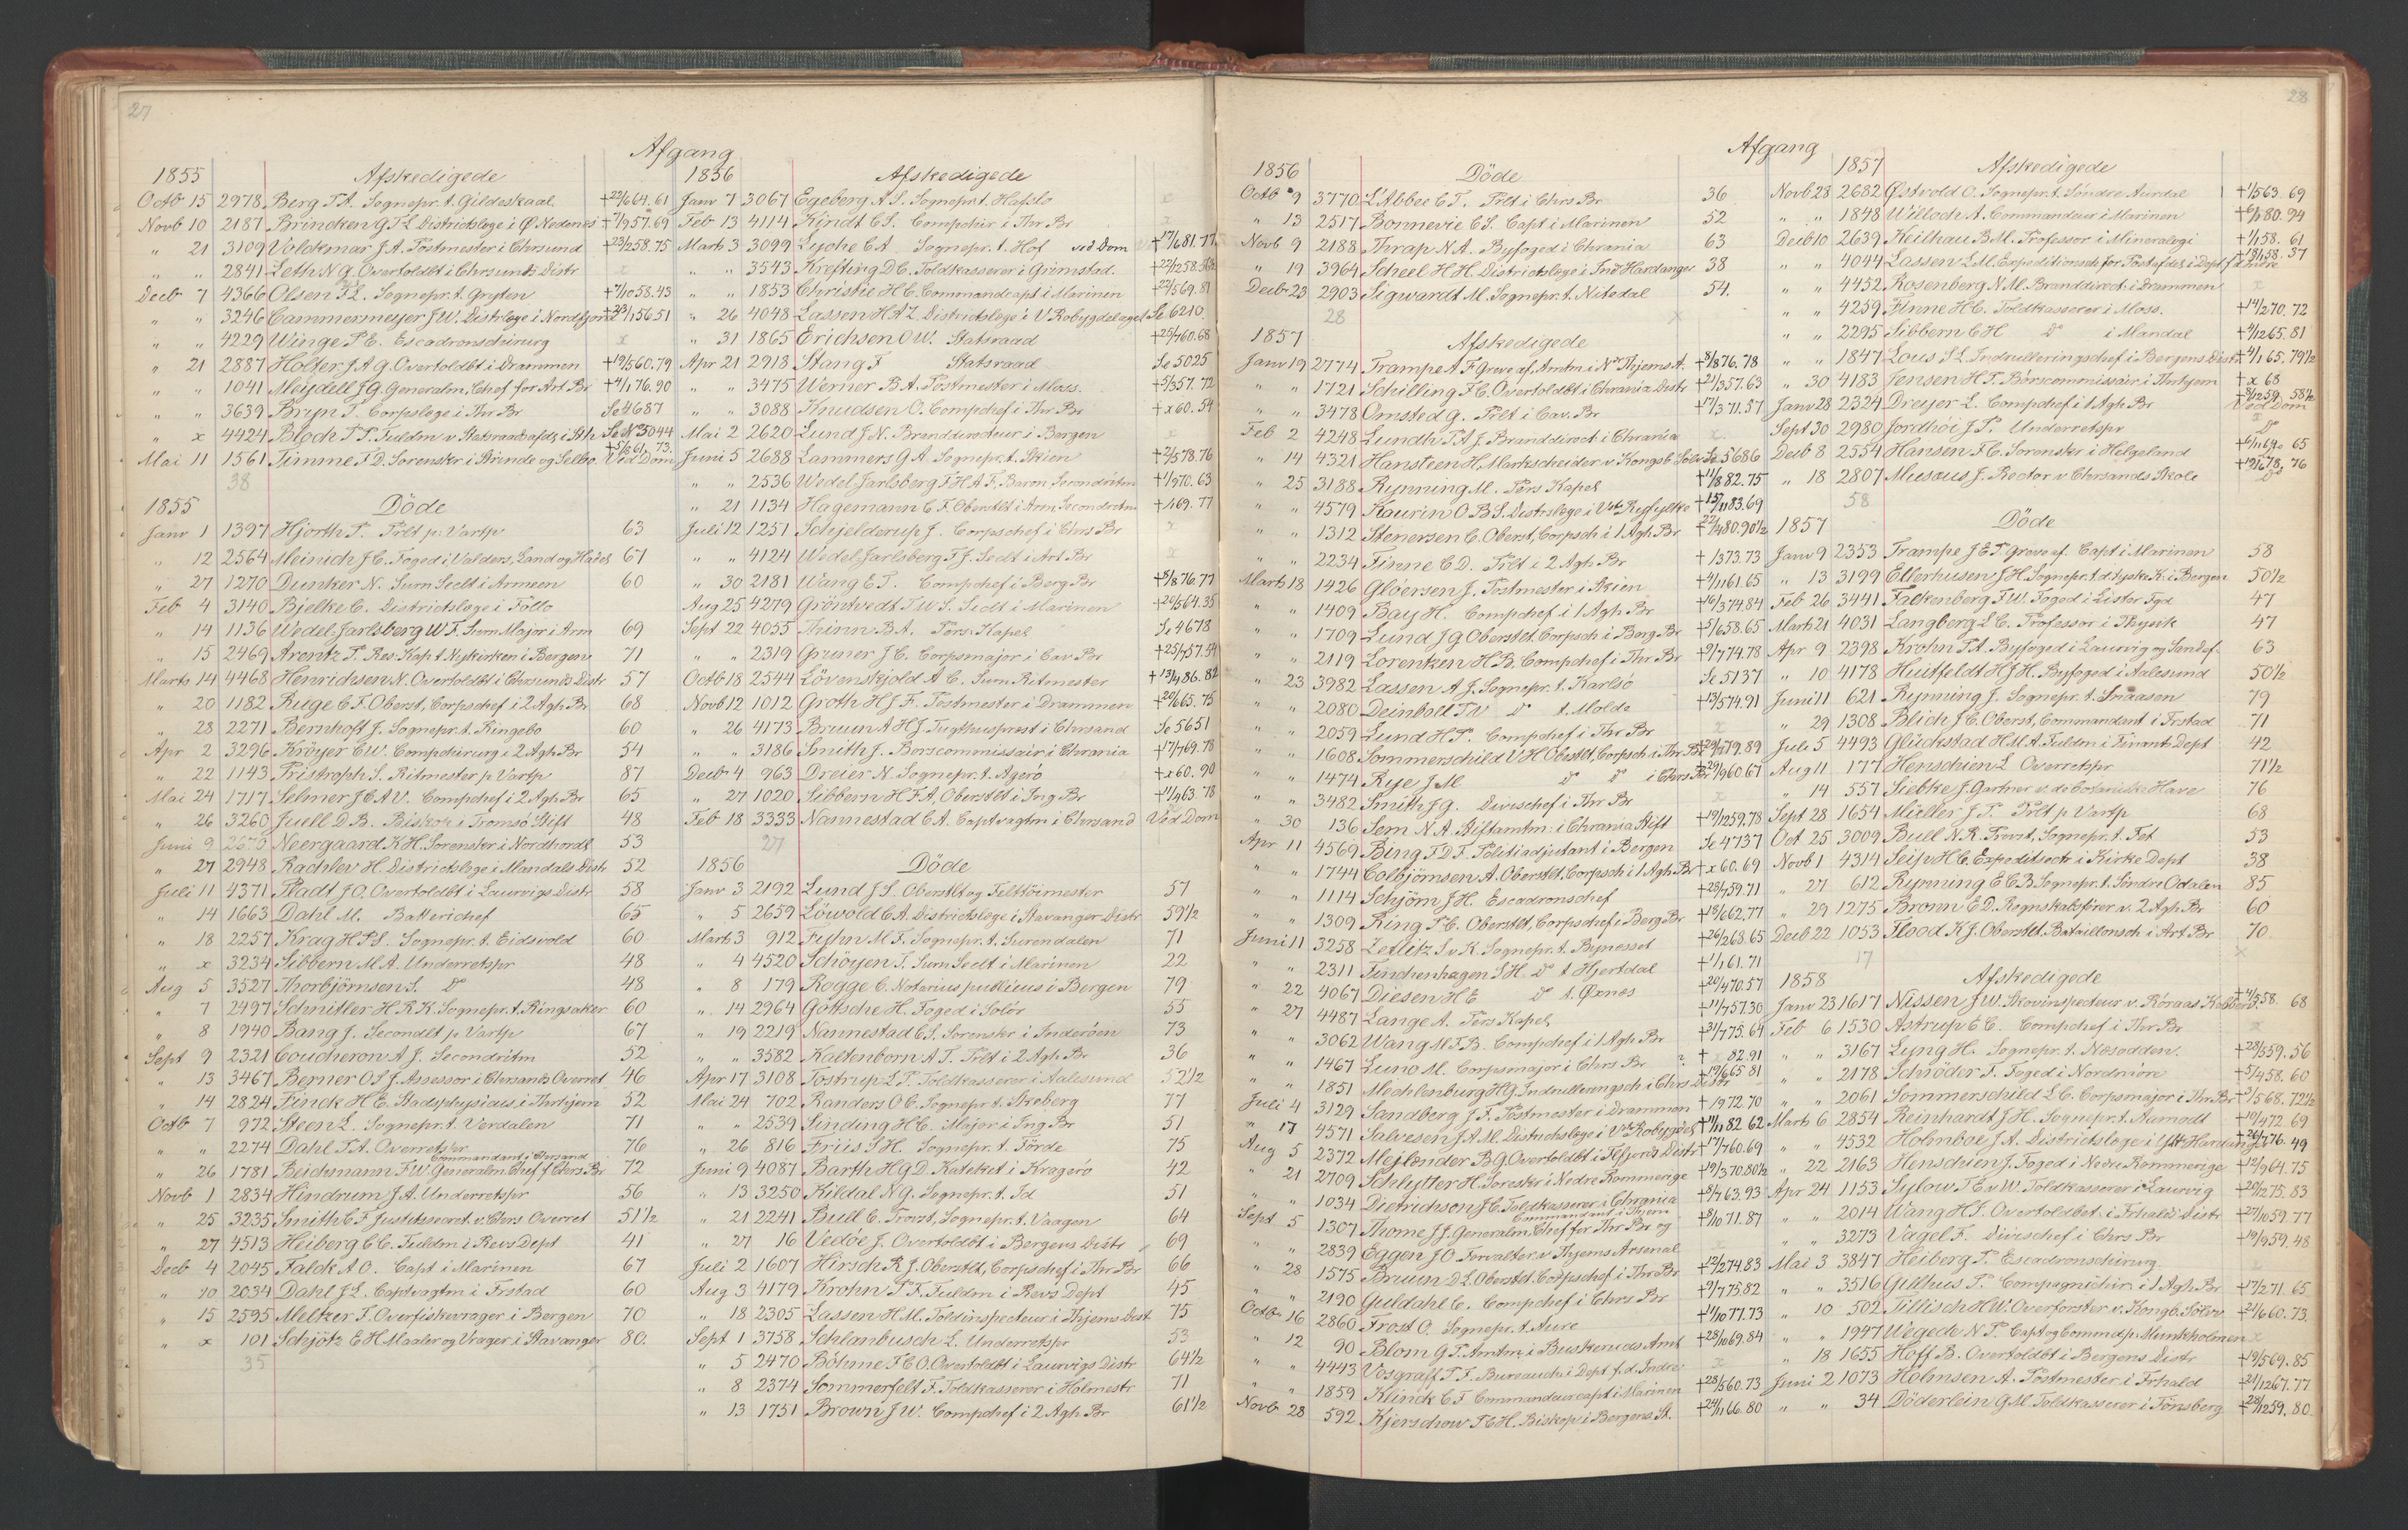 27
Afgang
1855 Afskedigede
Octb 15 2978 Berg P.A. Sognepr. t. Gildeskaal +22/6 64. 61
Novb 10 2187 Brincken G F L Districtslæge i Ø. Nedenes +7/9 57. 69
" 21 3109 Voldkmar J.A. Postmester i Chrsund +23/12 58. 75
" " 2841 Leth N G. Overtoldbt i Chrsunds Distr x
Decb 7 4366 Olsen P.L. Sognepr. t. Gryten +7/10 58. 43
" " 3246 Cammermeyer J W. Distrlæge i Nordfjord
" " 4229 Winge P E. Escadronschirurg x
" 21 2887 Holter J A G. Overtoldbt i Drammen +19/5 60. 79
" " 1041 Meydell J G. Generalm, Chef for Art. Br +4/1 76. 90
" " 3639 Bryn T. Corpslæge i Thr Br Se 4687
" x 4424 Bloch P P. Fuldm v Statsraadsafdl i Sth Se No 3044
Mai 11 1561 Timme F D. Sorenskr. i Strinde og Selbo +5/8 61. 73. Ved Dom
38
1855 Döde
Janv 1 1397 Hjorth P. Prlt p. Vartp 63
" 12 2564 Meinich J C. Foged i Valders, Land og Hadel 67
" 27 1270 Dunker N. Surn Seclt i Armeen 60
Feb 4 3140 Bjelke C. Districtslæge i Follo
" 14 1136 Wedel-Jarlsberg W F. Surn Major i Arm 69
" 15 2469 Arentz P. Res. Kap. t Nykirken i Bergen 71
Marts 14 4468 Henrichsen N. Overtoldbt i Chrsunds Distr 57
" 20 1182 Ruge C F. Oberst, Corpschef i 2 Agh Br 68
" 28 2271 Bernhoft J. Sognepr. t. Ringebo 60
Apr 2 3296 Kröyer C W. Compchirurg i 2 Agh Br 54
" 22 1143 Pristroph S. Ritmester p Vartp 87
Mai 24 1717 Selmer J C A V. Compchef i 2 Agh Br 65
" 26 3260 Juell D. B. Biskop i Tromsö Stift 48
Juni 9 2670 Neergaard K H. Sorenskr i Nordhordl 53
" 27 2948 Rachlew H. Districtslæge i Mandals Distr 52
Juli 11 4371 Stadt J O. Overtoldbt i Laurvigs Distr 58
" 14 1663 Dahl M. Batterichef 65
" 18 2257 Krag H P S. Sognepr. t. Eidsvold 60
" x 3234 Sibbern M A. Underretspr 48
Aug 5 3527 Thorbjörnsen S. Do 48
" 7 2497 Schnitler H R K. Sognepr. t. Ringsaker 60
" 8 1940 Bang J. Secondlt p Vartp 67
Sept 9 2321 Coucheron A J. Secondritm 52
" 13 3467 Berner O S J. Assessor i Chrsands Overret 46
" 14 2824 Finck H E. Stadsphysicus i Thrhjem 52
Octb 7 972 Steen L. Sognepr. t. Verdalen 71
" " 2274 Dahl P.A. Overretspr 76
Commandant i Chrsand
" 26 1781 Beichmann F W. Generalm. Chef f Chrs Br 72
Novb 1 2834 Hindrum J A. Underretspr 56
" 25 3235 Smith C F. Justitssecret. v. Chrs Overret 51½
" 27 4513 Heiberg C C. Fuldm i Revs Dept 41
Decb 4 2045 Falck A O. Capt i Marinen 67
" 10 2034 Dahl J L. Captvagtm i Frstad 60
" 15 2595 Meltzer F. Overfiskevrager i Bergen 70
" x 101 Schjötz E H Maaler og Vrager i Stavanger 80.
35
1856 Afskedigede
Janv 7 3067 Egeberg A S. Sognepr. t. Hafslo x
Feb 13 4114 Kindt C S. Compchir i Thr Br x
Marts 3 3099 Lyche C A Sognepr. t. Hof ved Dom +17/6 81. 77
" " 3543 Krefting D C. Toldkasserer i Grimstad.
" " 1853 Christie H C. Commandcapt i Marinen +22/5 69. 81
" 26 4048 Lassen H A L. Districtslæge i V Robygdelaget Se 6210
" 31 1865 Erichsen O W. Statsraad +25/4 60. 68
Apr 21 2918 Stang F Statsraad Se 5025
" " 3475 Werner B A. Postmester i Moss. +5/3 57. 72
" " 3088 Knudsen O. Compchef i Thr Br +x 60. 54
Mai 2 2620 Lund J N. Branddirecteur i Bergen x
Juni 5 2688 Lammers G A. Sognepr. t. Skien +2/5 78. 76
" " 2536 Wedel Jarlsberg F H A F. Baron, Secondritm +1/9 70. 63
" 21 1134 Hagemann C F. Oberstlt i Arm, Secondretm
Juli 12 1251 Schjelderup J. Corpschef i Chrs Br x
" " 4124 Wedel Jarlsberg F J. Seclt i Art Br x
" 30 2181 Wang E T. Compchef i Berg Br +8/8 76. 77
Aug 25 4279 Gröntvedt P W S. Seclt i Marinen +20/5 64. 35
Sept 22 4055 Thinn B A. Pers. Kapel Se 4678
" " 2319 Gruner J C. Corpsmajor i Cav Br
Octb 18 2544 Lövenskjold A C. Surn Ritmester +13/4 86. 82
Novb 12 1012 Groth H J F. Postmester i Drammen +20/1 65. 75
" 26 4173 Bruun A H J. Tugthusprest i Chrsand Se 5651
" " 3186 Smith J. Borscommissair i Chrania +17/4 69. 78
Decbr 4 963 Dreier N. Sognepr. t. Agerö +x 60. 90
" 27 1020 Sibbern H F A, Oberstlt i Ing Br +11/4 63. 78
Feb 18 3333 Nannestad C A. Captvagtm i Chrsand Ved Dom
27
1856 Döde
Janv 3 2192 Lund J S. Oberstlt og Felttöimester 57
" 5 2659 Löwold C A. Districtslæge i Stavanger Distr 59½
Marts 3 912 Fyhn M F. Sognepr. t. Surendalen 71
" 4 4520 Schöyen T. Surn Seclt i Marinen 22
" 8 179 Rogge C. Notarius publicus i Bergen 79
" 14 2964 Göttsche H. Foged i Solör 55
" 19 2219 Nannestad C S. Sorenskr. i Inderöen 73
" " 3582 Kaltenborn A T. Prlt i 2 Agh Br 36
Apr 17 3108 Tostrup L P. Toldkasserer i Aalesund 52½
Mai 24 702 Randers O C. Sognepr. t. Skeberg 77
" " 2539 Sinding H C. Major i Ing Br 51
" 26 816 Friis S H. Sognepr. t. Förde 75
Juni 9 4087 Barth H G D. Kateket i Kragerö 42
" 13 3250 Kildal N G. Sognepr. t. Id 51
" 21 2241 Bull C. Provst, Sognepr. t. Vaagen 64
" 27 16 Vedöe J. Overtoldbt i Bergens Distr 69
Juli 2 1607 Hirsch R J. Oberstlt, Corpschef i Thr Br 66
Aug 3 4179 Krohn P F. Fuldm i Revs Dept 45
" 18 2305 Lassen H M. Toldinspecteur i Thjems Dist 75
Sept 1 3758 Schlanbusch L. Underretspr 53
" 5 2470 Böhme F C O. Overtoldbt i Laurvigs Distr 64½
" 8 2374 Sommerfelt F. Toldkasserer i Holmestr 71
" 13 1751 Brown J W. Compchef i 2 Agh Br 61½
28
Afgang
1856 Döde
Octb 9 3770 L'Abbee C T. Prlt i Chrs Br 36
" 13 2517 Bonnevie C S. Capt i Marinen 52
Novb 9 2188 Thrap N A. Byfoged i Chrania 63
" 19 3964 Scheel H H. Districtslæge i Ind Hardanger 38
Decbr 23 2903 Sigwardt M. Sognepr. t. Nitedal 54.
28 x
1857 Afskedigede
Janv 19 2774 Trampe A F Greve af, Amtm i Nr Thjems A. +8/8 76. 78
" " 1721 Schilling F C. Overtoldbt i Chrania Distr +21/3 57. 63
" " 3478 Omsted G. Prlt i Cav. Br +17/3 71. 57
Feb 2 4248 Lundh P A J. Branddirect. i Chrania x
" 14 4321 Hansteen H, Markscheider v. Kongsb Sölv Se 5686
" 25 3188 Rynning M. Pers Kapel +11/8 82. 75
" " 4579 Kaurin O B S. Distrslæge i Vstr Ryfylke +15/11 83. 69
" " 1312 Stenersen C. Oberst, Corpsch i 1 Agh Br +22/4 80. 90½
" " 2234 Finne C D. Prlt i 2 Agh Br
Marts 18 1426 Glöersen J. Postmester i Skien +4/11 61. 65
" " 1409 Bay H. Compchef i 1 Agh Br +16/3 74. 84
" " 1709 Lund J G Oberstlt, Corpsch i Berg Br +5/6 58. 65
" " 2119 Lorentzen H B. Compchef i Thr Br +9/7 74. 78
" 23 3982 Lassen A J. Sognepr. t. Karlsö Se 5137
" " 2080 Deinboll P V Do t. Molde +13/5 74. 91
" " 2059 Lund H P. Compchef i Thr Br x
" " 1608 Sommerschild V H Oberstlt, Corpsch i Thr Br
" " 1474 Rye J M Do Do i Chrs Br +29/9 60. 67
" " 3482 Smith J G. Divischef i Thr Br x
" 30 136 Sem N A. Stiftamtm: i Chrania Stift +19/12 59. 78
Apr 11 4569 Bing F D F. Politiadjutant i Bergen Se 4737
" " 1744 Colbjörnsen A. Oberstlt, Corpsch i 1 Agh Br +x 60. 69
" " 1114 Schjöm J H. Escadronschef
" " 1309 Ring P C. Oberstlt, Corpschef i Berg Br +18/6 62. 77
Juni 11 3258 Zetlitz S v K. Sognepr. t. Bynesset +26/2 68. 65
" " 2311 Finckenhagen S H. Do t Hjertdal +1/1 61. 71
" 22 4067 Diesen H E Do t. Øxnes +20/4 70. 57
" 27 4487 Lange A. Pers Kapel
" " 3062 Wang M F B. Compchef i 1 Agh Br +31/7 75. 64
" " 1467 Lund M. Corpsmajor i Chrs Br ? + x 82. 91
" " 1851 Mechlenburg H G. Indrulleringsch i Chrs Distr +19/6 65 81
Juli 4 3129 Sandberg J F. Postmester i Drammen
" 17 4571 Salvesen J A M. Districtslæge i Vstr Robygdel +11/11 82 62
Aug 5 2372 Mejlænder B G. Overtoldbt i Flefjords Distr +17/7 60. 69
" 21 2709 Schlytter H. Sorenskr i Nedre Rommerige +19/3 70. 80½
" " 1034 Dietrichson J C. Toldkasserer i Chrania
Commandant i Thjem
Sept 5 1307 Thome J J. Generalm, Chef for Thr Br og +8/10 71. 87
" " 2839 Eggen J O Forvalter v Thjems Arsenal x
" 28 1575 Bruun D L. Oberstlt, Corpschef i Thr Br +13/2 74 83
" " 2190 Guldahl C. Compchef i Chrs Br +9/7 75. 82
Octbr 16 2860 Frost O. Sognepr. t. Aure +11/10 77. 73
" 12 90 Blom G P. Amtm: i Buskeruds Amt +28/10 69. 84
" " 4443 Vosgraff P F. Bureauch i Dept f. d. Indre x
" " 1859 Klinck C F. Commandeurcapt i Marinen +28/5 60. 73
Novb 28 592 Kjerschow P C H. Biskop i Bergens St. +24/1 66. 80
1857 Afskedigede
Novb 28 2682 Østvold O. Sognepr. t. Söndre Aurdal +1/5 63. 69
" " 1848 Willoch A. Commandeur i Marinen
Decb 10 2639 Keilhau B M. Professor i Mineralogi +1/1 58. 61
" " 4044 Lassen L M. Expeditionschef for Postafdel i Dept f d Indre +18/1 58. 37
" " 4452 Rosenberg N M. Branddirect. i Drammen x
" " 4259 Finne H C. Toldkasserer i Moss. +14/2 70. 72
" " 2295 Sibbern C H Do i Mandal +4/12 65. 81
" " 1847 Lous P L. Indrulleringschef i Bergens Distr
" 30 4183 Jensen H P. Börscommissair i Thrhjem + x 68
Janv 28 2324 Dreyer L. Compchef i 1 Agh Br Ved Dom
Sept 30 2980 Jordhöi J P. Underretspr Do
Decb 8 2554 Hansen F C. Sorenskr i Helgeland
" 18 2807 Musæus J. Rector v Chrsands Skole Do
58
1857 Döde
Janv 9 2353 Trampe J E P. Greve af. Capt i Marinen 58
" 13 3199 Ellerhusen J H. Sognepr. t. d tyske K. i Bergen 50½
Feb 26 3441 Falkenberg F W. Foged i Lister Fgd 47
Marts 21 4031 Langberg L C. Professor i Physik 47
Apr 9 2398 Krohn P A. Byfoged i Laurvig og Sandef. 63
" 10 4178 Huitfeldt H J H. Byfoged i Aalesund 50½
Juni 11 621 Rynning J. Sognepr. t. Snaasen 79
" 29 1308 Blich J C. Oberst, Commandant i Frstad 71
Juli 5 4493 Glückstad H M A. Fuldm i Finants Dept 42
Aug 11 177 Henschien L Overretspr 71½
" 14 557 Siebke J. Gartner v. de Botaniske Have 76
Sept 28 1654 Müeller J P. Prlt p Vartp 68
Oct 25 3009 Bull N. R. Provst, Sognepr. t. Fet 53
Novb 1 4314 Seip H C. Expeditsectr i Kirke Dept 38
" 27 612 Rynning E C B. Sognepr. t. Söndre Odalen 85
" 29 1275 Bronn E D. Regnskabsförer v. 2 Agh Br 60
Decb 22 1053 Flood K J. Oberstlt. Bataillonsch i Art Br 70
17 x
1858 Afskedigede
Janv 23 1617 Nissen J W. Skovinspecteur v. Röraas Kobberv. +4/3 58. 68
Feb 6 1530 Astrup E C. Compchef i Thr Br x
" " 3167 Lyng H. Sognepr. t. Næsodden. +28/5 59. 56
" " 2178 Schröder F. Foged i Nordmöre +5/4 58. 60
" " 2061 Sommerschild L C. Corpsmajor i Thr Br +31/5 68. 72½
Marts 6 2854 Reinhardt J H. Sognepr. t. Aamodt +10/4 72. 69
" " 4532 Holmboe J A. Districtslæge i Ytr Hardang
" 22 2163 Henschien J. Foged i Nedre Rommerige +12/9 64. 75
Apr 24 1153 Sylow P E v W. Toldkasserer i Laurvig +20/2 75. 83
" " 2014 Wang H S. Overtoldbet. i Frhalds Distr +27/10 59. 77
" " 3273 Vagel F. Divischef i Chrs Br +19/9 59. 48
Mai 3 3847 Heiberg P. Escadronschirurg x
" " 3516 Gillhus P. Compagnichir. i 1 Agh Br +17/2 71. 65
" 10 502 Tillisch H W. Overforster v. Kongb. Sölvv +21/6 60. 73.
" " 1947 Wegede N P. Capt og Commdt p. Munkholmen x
" 18 1655 Hoff B. Overtoldbt i Bergens Distr +19/5 69. 85
Juni 2 1073 Holmsen A. Postmester i Frhald +21/12 67. 77
" " 34 Döderlein G M. Toldkasserer i Tönsberg +28/12 59. 80